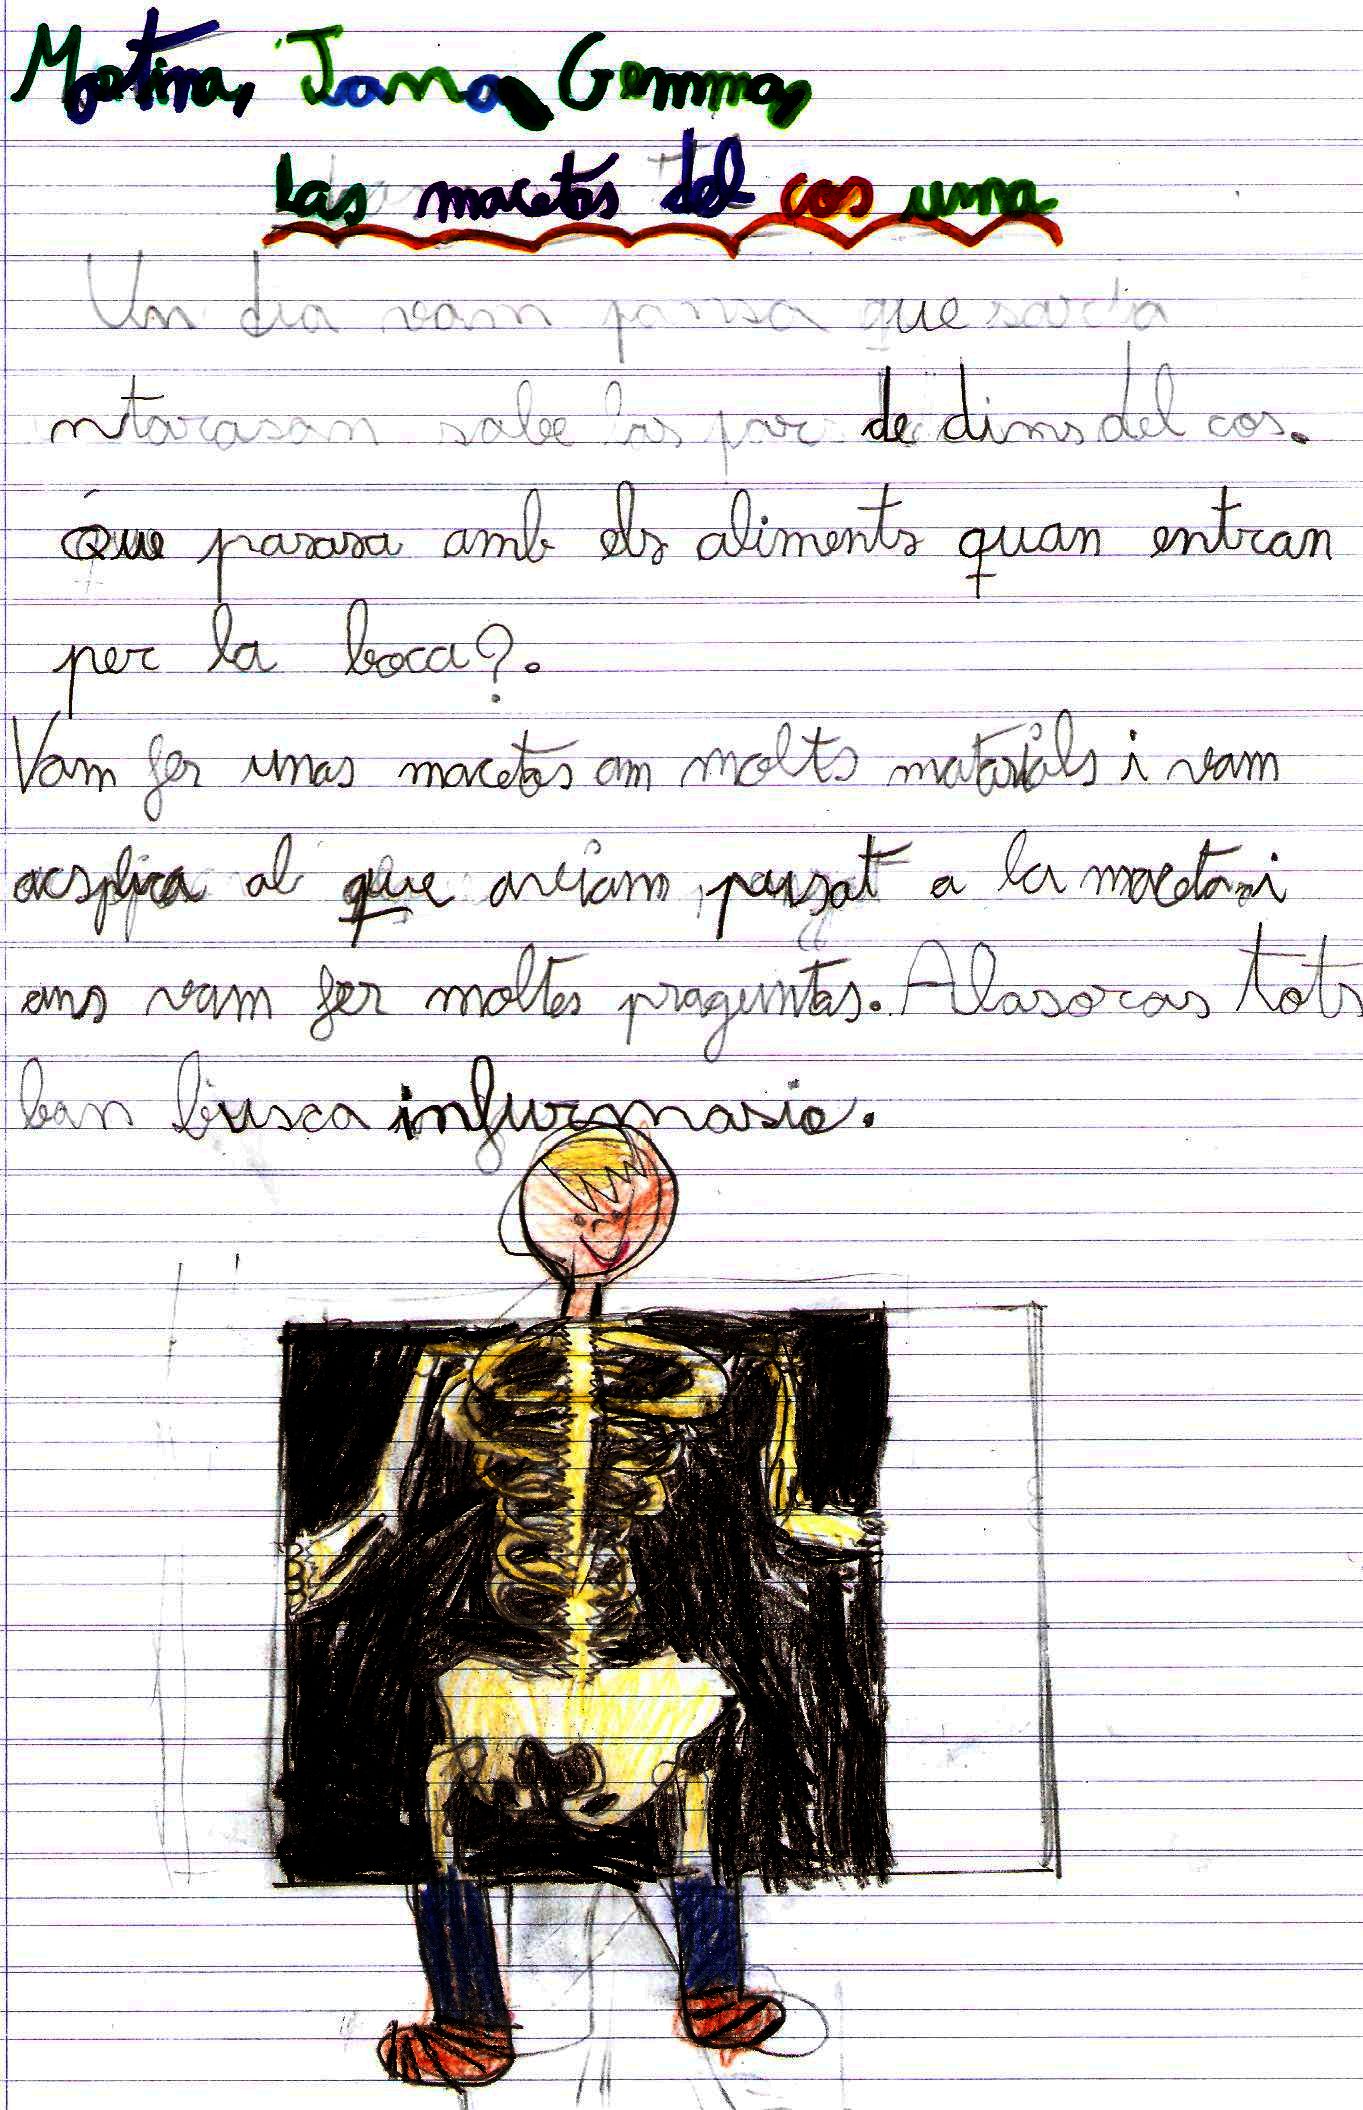 Martina, Jana, Gemma,
las macetas del cos uma.
Un dia vam pansa que saria
ntarasan sabe las par de dins del cos.
Que pasasa amb els aliments quan entran
per la boca?.
Vam fer unas macetas am molts matarials i vam
acsplica al que aviam pusat a la maceta i
ans vam fer moltes praguntas. Alasoras tots
ban busca infurmasio.